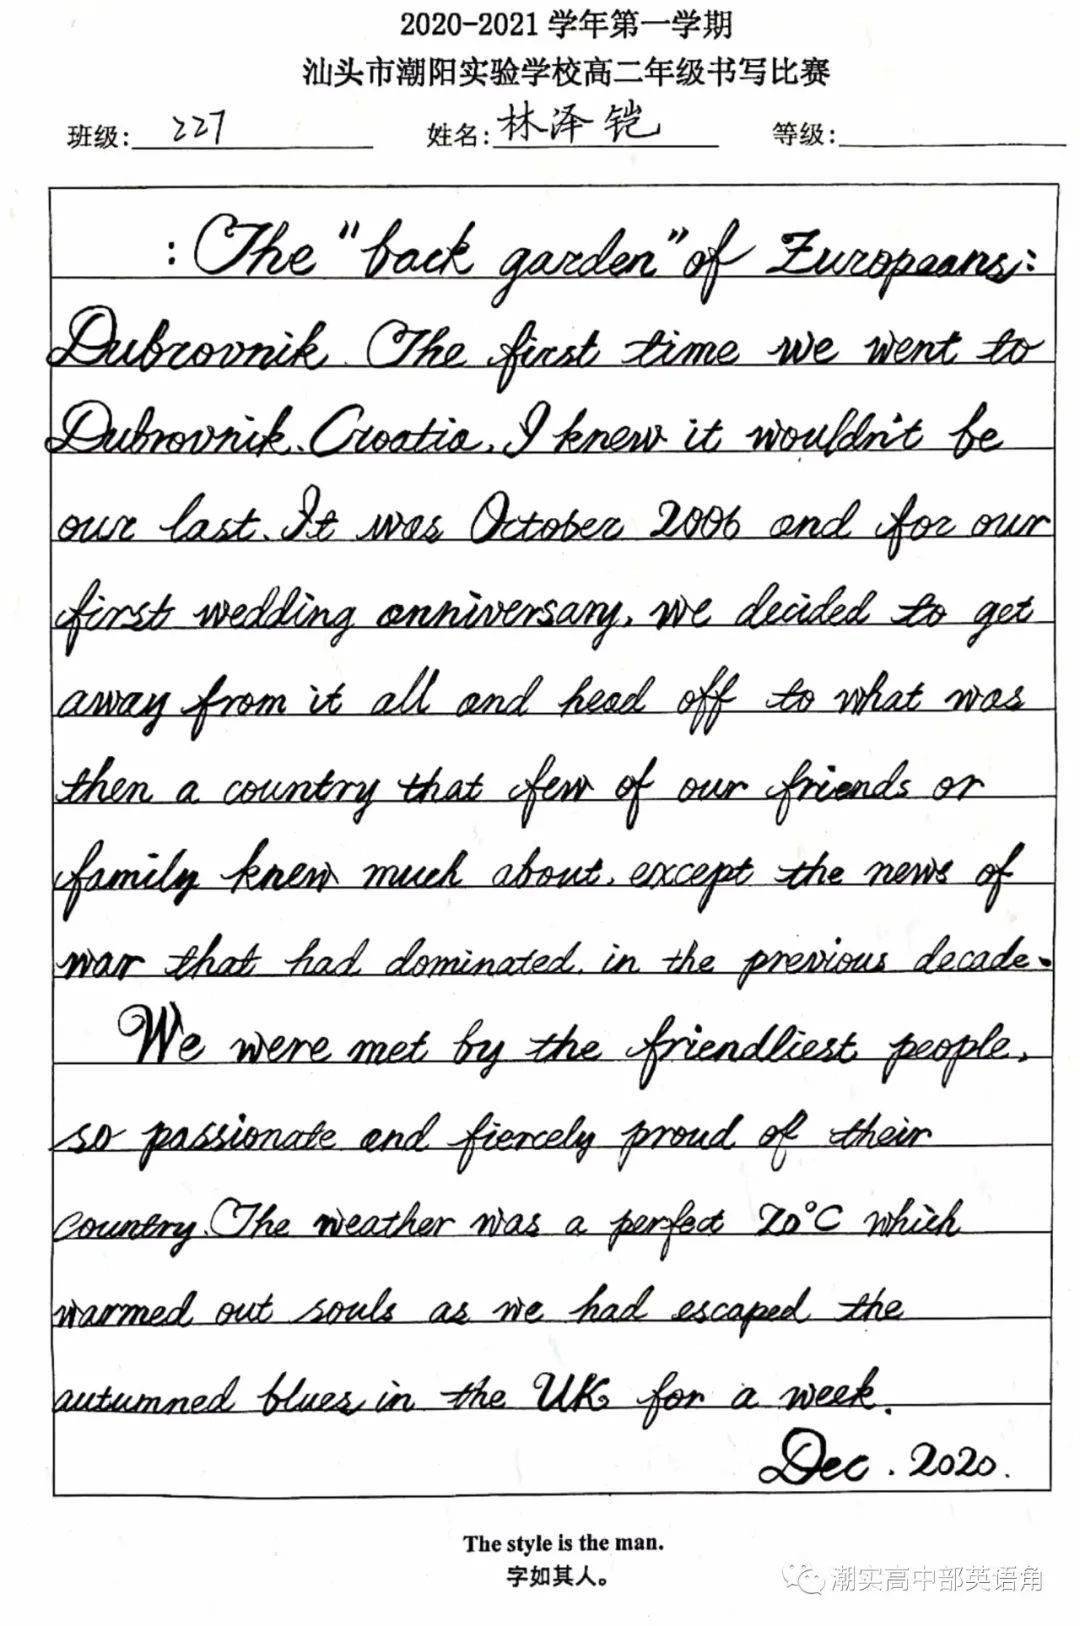 2020-2021 学年第一学期
汕头市潮阳实验学校高二年级书写比赛
班级: 227 姓名: 林泽铠 等级:
: The "back garden" of Europeans:
Dubrovnik. The first time we went to
Dubrovnik. Croatia, I knew it wouldn't be
our last. It was October 2006 and for our
first wedding anniversary, we decided to get
away from it all and head off to what was
then a country that few of our friends or
family knew much about, except the news of
war that had dominated in the previous decade.
We were met by the friendliest people,
so passionate and fiercely proud of their
country. The weather was a perfect 20°C which
warmed out souls as we had escaped the
autumned blues in the UK for a week.
Dec. 2020.
The style is the man.
字如其人。
潮实高中部英语角